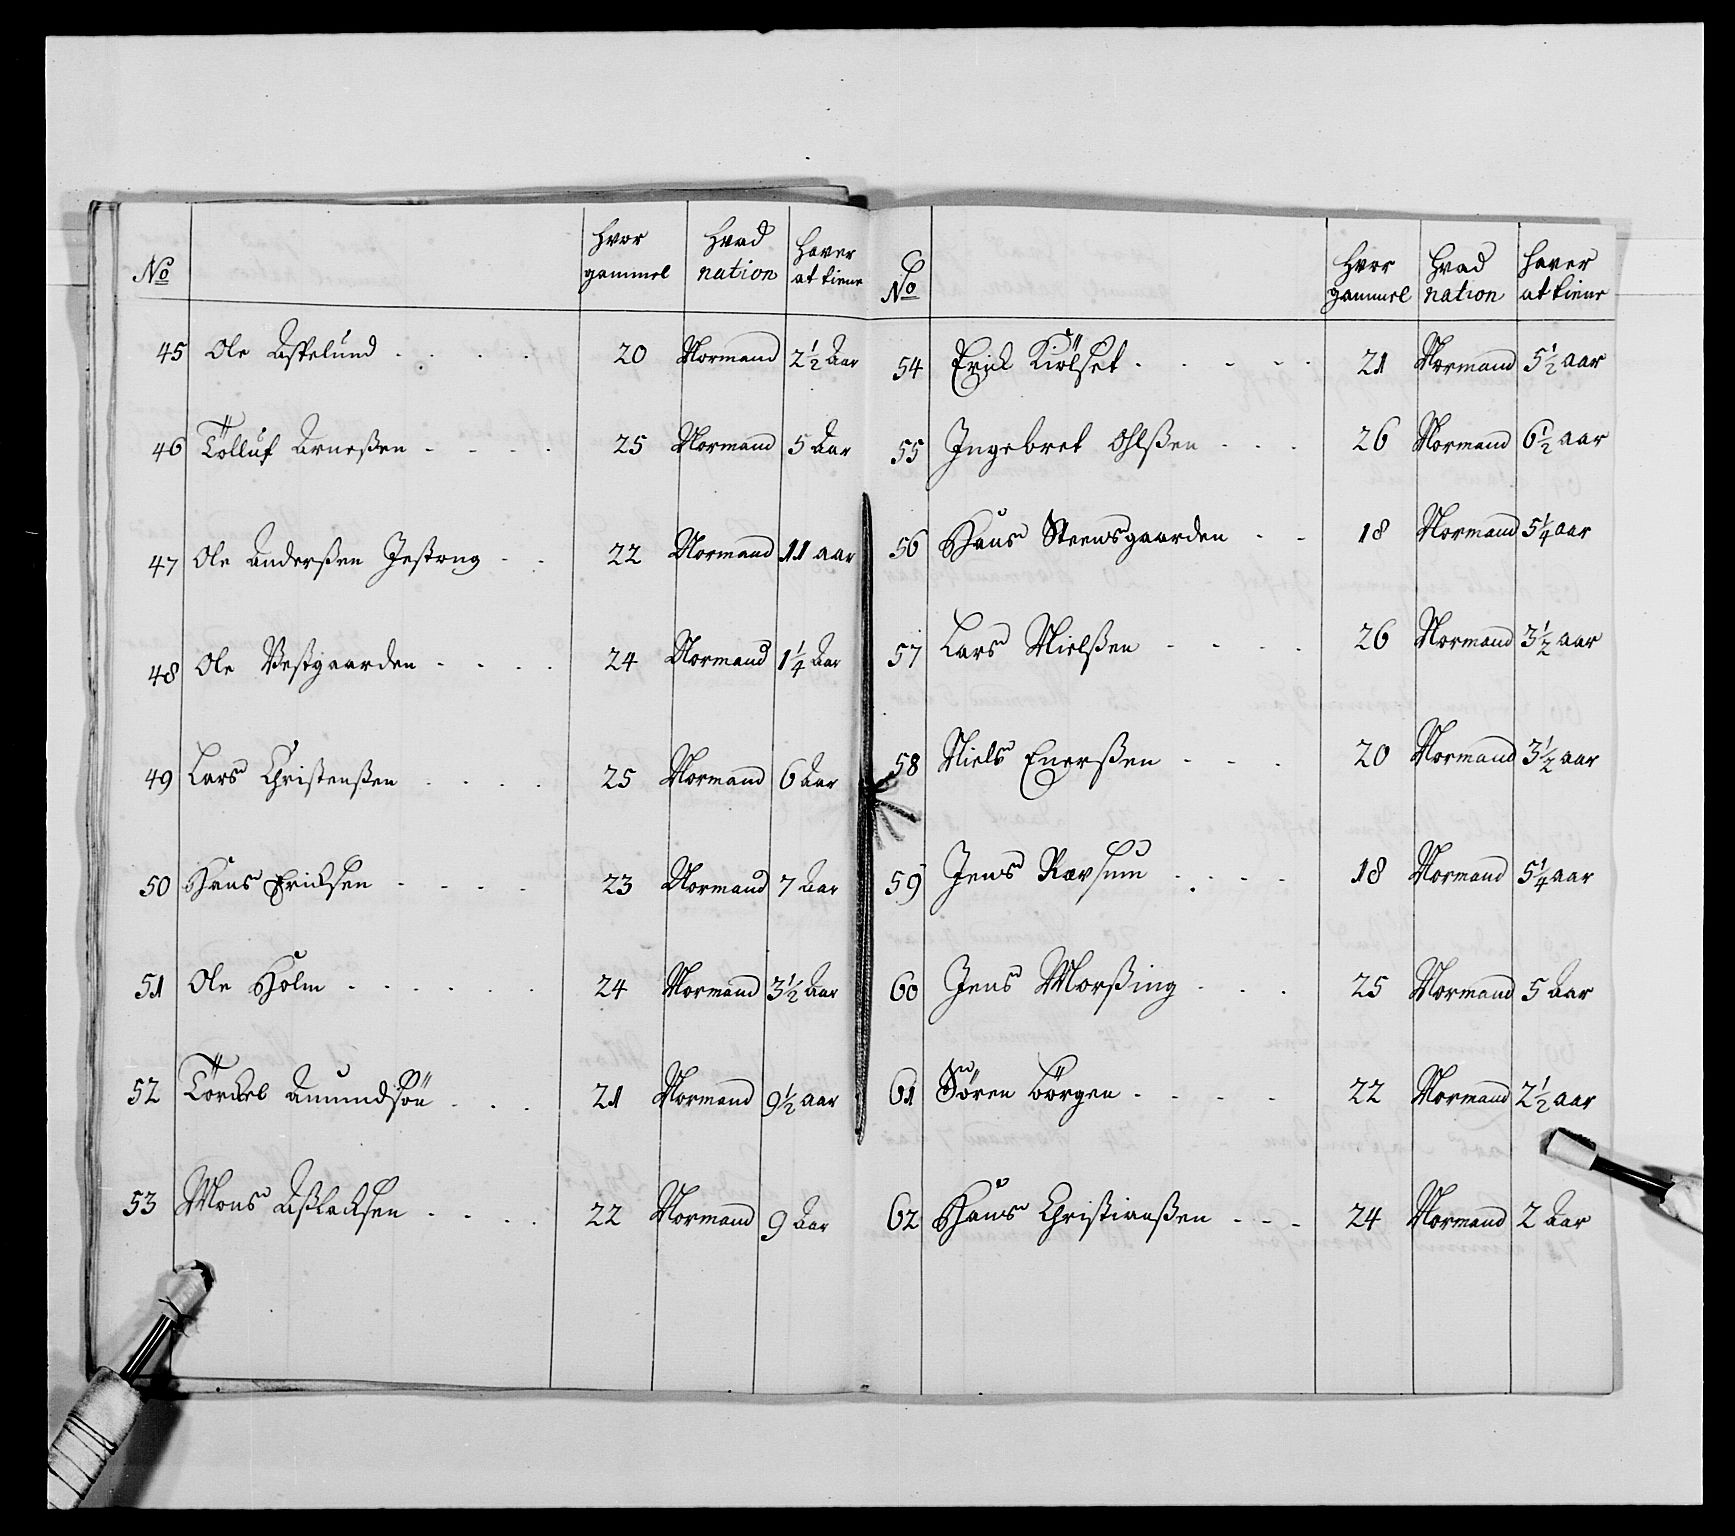 No hvor gammel hvad nation haver at tiene
45 Ole Aspelund . . . . 20 Normand 2½ Aar
46 Tolluf Arneßen - - - . 25 Normand 5 Aar
47 Ole Anderßen Jestong - - 22 Normand 11 aar
48 Ole Vestgaarden - - - . 24 Normand 1¼ Aar
49 Lars Christenßen . . . . 25 Normand 6 Aar
50 Hans Ericksen - - - - 23 Normand 7 Aar
51 Ole Holm . . . . . . 24 Normand 3½ Aar
52 Törckel Amundsön . . . 21 Normand 9½ aar
53 Mons Aßlacksen . . . . 22 Normand 9 Aar
No hvor gammel hvad nation haver at tiene
54 Erick Kiölset . . . . . 21 Normand 5½ aar
55 Ingebret Ohlßen - - - 26 Normand 6½ aar
56 Hans Steensgaarden - - 18 Normand 5¼ aar
57 Lars Nielßen - - - . 26 Normand 3½ aar
58 Niels Enerßen - - . 20 Normand 3½ aar
59 Jens Ravsum . . . . 18 Normand 5¼ aar
60 Jens Morßing - - . 25 Normand 5 Aar
61 Sören Börgen . . . . 22 Normand 2½ aar
62 Hans Christianßen - - - 24 Normand 2 Aar